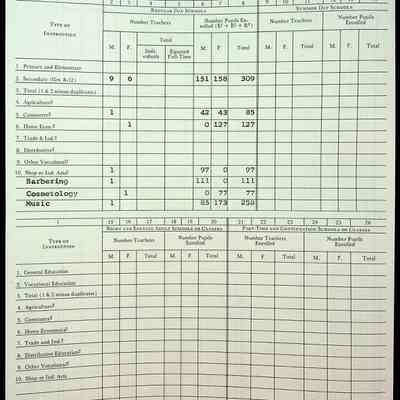 2 3 4 5 6 7 8 9 10 11 12 13 14
Type of Instruction
Regular Day Schools Summer Day Schools
Number Teachers Number Pupils Enrolled Number Teachers Number Pupils Enrolled
Total
M. F. Indi-viduals Equated Full-Time M. F. Total M. F. Total M. F. Total
1. Primary and Elementary
2. Secondary 9 6 151 158 309
3. Total (1 & 2 minus duplicates)
4. Agriculture?
5. Commerce? 1 42 43 85
6. Home Econ.? 1 0 127 127
7. Trade & Ind.?
8. Distributive?
9. Other Vocational?
10. Shop or Ind. Arts? 1 97 0 97
Barbering 1 111 0 111
Cosmetology 1 0 77 77
Music 1 85 173 258
1 15 16 17 18 19 20 21 22 23 24 25 26
Type of Instruction
Night and Evening Adult Schools or Classes Part-Time and Continuation Schools or Classes
Number Teachers Number Pupils Enrolled Number Teachers Enrolled Number Pupils Enrolled
M. F. Total M. F. Total M. F. Total M. F. Total
1. General Education
2. Vocational Education
3. Total (1 & 2 minus duplicates)
4. Agriculture?
5. Commerce?
6. Home Economics?
7. Trade and Ind.?
8. Distributive Education?
9. Other Vocational?
10. Shop or Ind. Arts